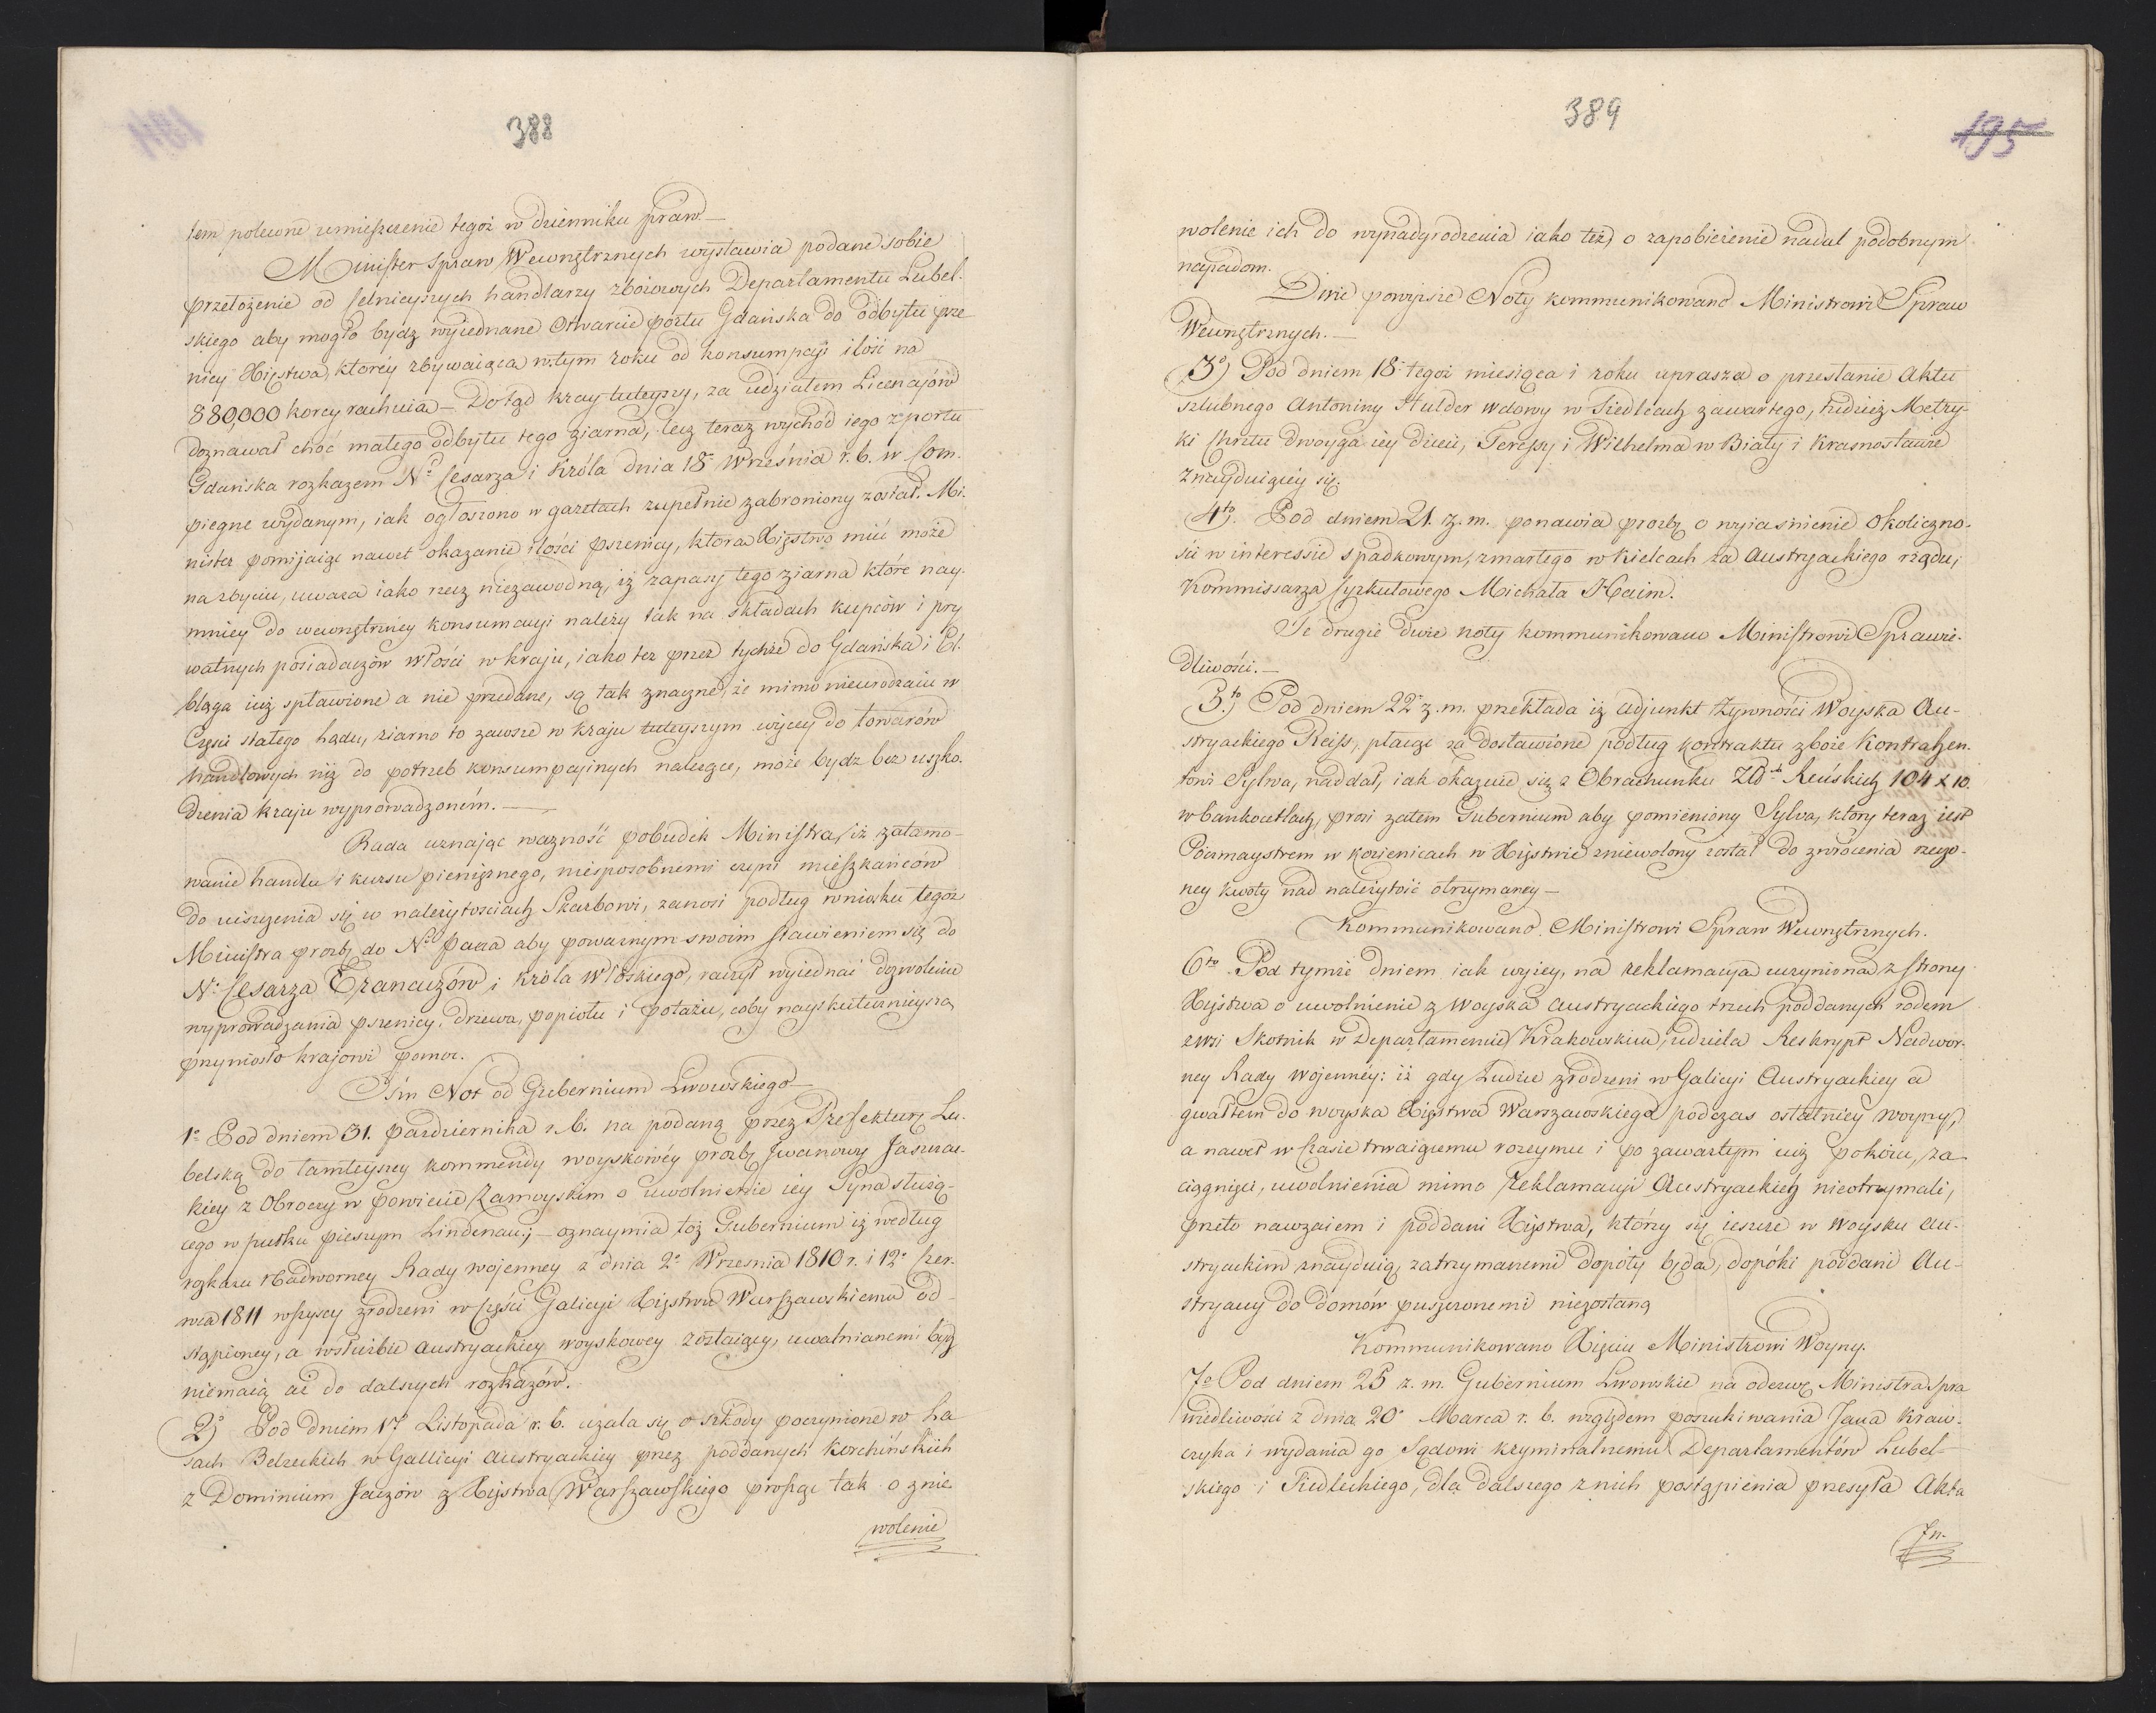 388
sem polecone umieszczenie tegoż w dzienniku praw. —
Minister Spraw Wewnętrznych wystawia podane sobie
przełożenie od celnieyszych handlarzy zbożowych Departamentu Lubel-
skiego aby mogło bydz wyiednane Otwarcie portu Gdańska do odbytu psze-
nicy Xięstwa, ktoréy zbywaiąca w tym roku od konsumpcyi ilość na
880,000 korcy rachuia — Dotąd kray tuteyszy, za udziałem Licencyów
doznawał choć małego odbytu tego ziarna, lecz teraz wychod iego z portu
Gdańska rozkazem Nº Cesarza i Króla dnia 18º Września r. b. w Com-
piegne wydanym, iak ogłoszono w gazetach zupełnie zabroniony został. Mi-
nister pomijaiąc nawet okazanie ilości pszenicy, ktora Xięstwo mieć może
na zbyciu, uważa iako rzecz niezawodną, iż zapasy tego ziarna które nay-
mniey do wewnętrzney konsumacyi należy tak na składach kupców i pry
watnych posiadaczów włości w kraju, iako też przez tychże do Gdańska i El-
bląga iuż spławione a nie przedane, są tak znaczne, że mimo nieurodzaiu w
Części stałego lądu, ziarno to zawsze w kraju tuteyszym więcey do towarów
handlowych niż do potrzeb konsumpcyinych należące, może bydz bez uszko-
dzenia kraju wyprowadzoném. —
Rada uznając ważność pobudek Ministra, iż zatamo-
wanie handlu i kursu pieniężnego, niesposobnemi czyni mieszkańców
do uiszczenia się w należytościach Skarbowi, zanosi podług wniosku tegoż
Ministra prozbę do Nº Pana aby poważnym swoim stawieniem się do
Nº Cesarza Francuzów i Króla Włoskiego, raczył wyiednać dozwolenie
wyprowadzania pszenicy, drzewa, popiołu i potażu, coby nayskutecznieyszą
przyniosło krajowi pomoc.
Ośm Not od Gubernium Lwowskiego —
1º Pod dniem 31. Pazdziernika r. b. na podaną przez Prefekturę Lu-
belską do tamteyszey kommendy woyskowéy prozbę Iwanowy Jasznac-
kiey z Obroczy w powiecie Zamoyskim o uwolnienie iey Syna służą-
cego w pułku pieszym Lindenau; — oznaymia toż Gubernium iż według
rozkazu Nadworney Rady wojenney z dnia 2º Wrzesnia 1810 r. i 12º Czer-
wca 1811 wszyscy zrodzeni w Części Galicyi Xięstwu Warszawskiemu od-
stąpioney, a w służbie austryackiey woyskowey zostaiący, uwalnianemi bydz
niemaią aż do dalszych rozkazów.
2º) Pod dniem 17 Listopada r. b. użala się o szkody poczynione w La
sach Belzeckich w Gallicyi Austryackiey przez poddanych Korchińskich
z Dominium Jaczów z Xięstwa Warszawskiego prosząc tak o znie
wolenie
389
195
wolenie ich do wynadgrodzenia iako też) o zapobieżenie nadal podobnym
napadom.
Dwie powyższe Noty kommunikowano Ministrowi Spraw
Wewnętrznych. —
3º) Pod dniem 18º tegoż miesiąca i roku uprasza o przesłanie Aktu
szlubnego Antoniny Hulder wdowy w Siedlcach zawartego, tudzież Metry-
ki Chrztu dwoyga iey dzieci, Teressy i Wilhelma w Biały i Krasnostawie
znayduiącéy się.
4to). Pod dniem 21. z. m. ponawia prozbę o wyiasnienie Okoliczno-
ści w interessie spadkowym, zmarłego w Kielcach za Austryackiego rządu,
Kommissarza Cyrkułowego Michała Haim.
Te drugie dwie noty kommunikowano Ministrowi Sprawie-
dliwości. —
5to) Pod dniem 22º z. m. przekłada iż adjunkt żywności Woyska Au-
stryackiego Reiss, płacąc za dostawione podług kontraktu zboże Kontrahen-
towi Sylva, naddał, iak okazuie się z Obrachunku Złth Reńskich 104 x 10.
w bankocetlach, prosi zatem Gubernium aby pomieniony Sylva, który teraz iest
Pocztmaystrem w Kozienicach w Xięstwie zniewolony został do zwrócenia rzeczo-
ney kwoty nad należytość otrzymaney —
Kommunikowano Ministrowi Spraw Wewnętrznych.
6to Pod tymże dniem iak wyżey, na reklamacyą uczynioną z strony
Xięstwa o uwolnienie z woyska austryackiego trzech poddanych rodem
z wsi Skotnik w Departamencie Krakowskim, udziela Reskrypt Nadwor-
ney Rady Wojennéy: iż gdy Ludzie zrodzeni w Galicyi Austryackiey a
gwałtem do woyska Xięstwa Warszawskiego podczas ostatniey woyny,
a nawet w Czasie trwaiącemu rozeymu i po zawartym iuż pokoiu, za-
ciągnięci, uwolnienia mimo Reklamacyi Austryackiey nieotrzymali,
przeto nawzaiem i poddani Xięstwa, którzy się ieszcze w Woysku au-
stryackim znayduią, zatrzymanemi dopóty będą, dopóki poddani Au-
stryaccy do domów puszczonemi niezostaną
Kommunikowano Xięciu Ministrowi Woyny.
7º Pod dniem 25 z. m. Gubernium Lwowskie na odezwę Ministra Spra
wiedliwości z dnia 20º Marca r. b. względem poszukiwania Jana Kraw-
czyka i wydania go Sądowi kryminalnemu Departamentów Lubel-
skiego i Siedleckiego, dla dalszego z nich postąpienia przesyła Akta
In-